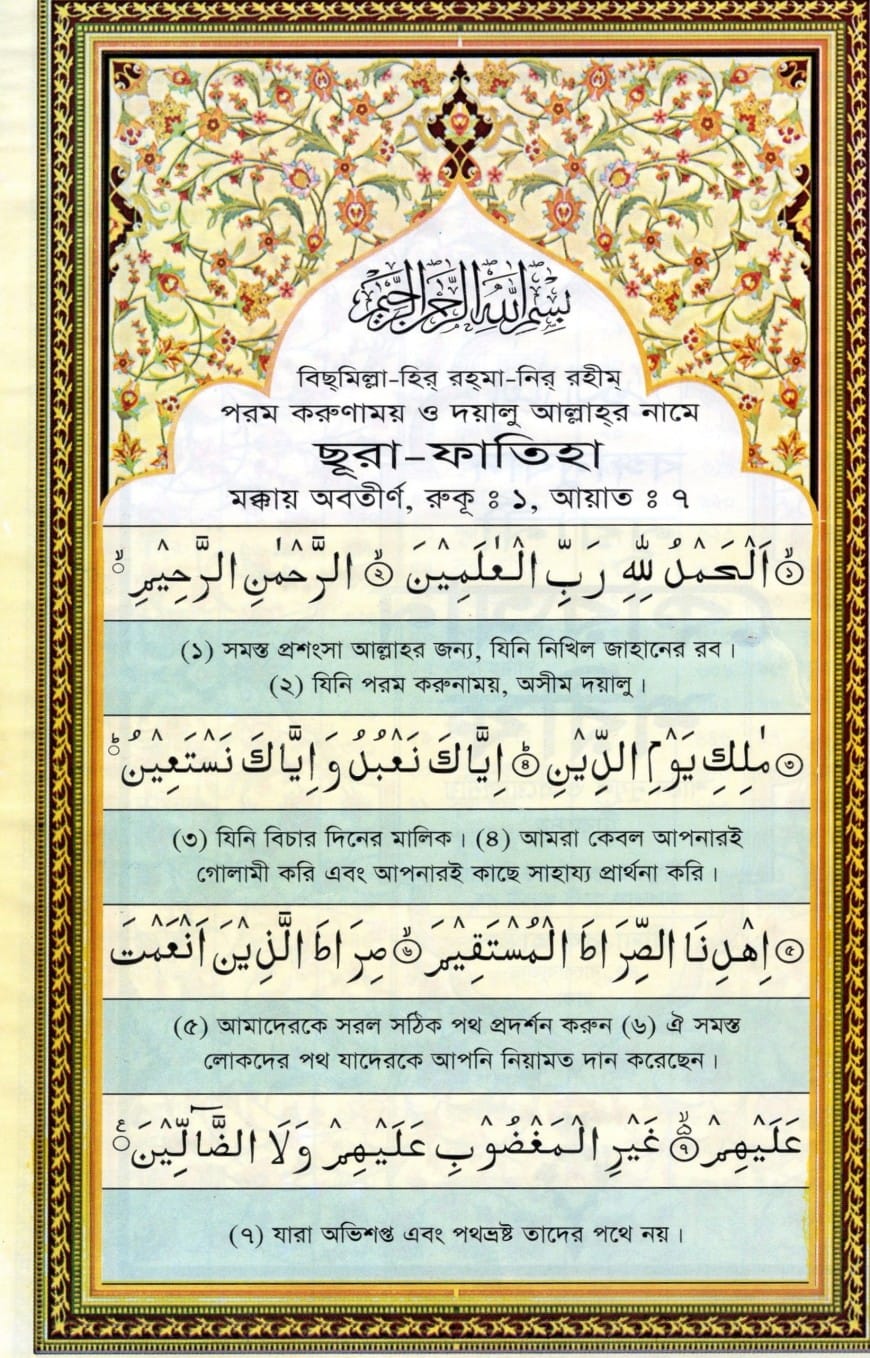 بِسْمِ اللّٰهِ الرَّحْمٰنِ الرَّحِيْمِ
বিছ্‌মিল্লা-হির্‌ রহ্‌মা-নির্‌ রহীম্‌
পরম করুণাময় ও দয়ালু আল্লাহ্‌র নামে
ছূরা-ফাতিহা
মক্কায় অবতীর্ণ, রুকূ ঃ ১, আয়াত ঃ ৭
১ اَلْحَمْدُ لِلّٰهِ رَبِّ الْعٰلَمِيْنَ ২ الرَّحْمٰنِ الرَّحِيْمِ
(১) সমস্ত প্রশংসা আল্লাহর জন্য, যিনি নিখিল জাহানের রব।
(২) যিনি পরম করুনাময়, অসীম দয়ালু।
৩ مٰلِكِ يَوْمِ الدِّيْنِ ৪ اِيَّاكَ نَعْبُدُ وَاِيَّاكَ نَسْتَعِيْنُ
(৩) যিনি বিচার দিনের মালিক। (৪) আমরা কেবল আপনারই
গোলামী করি এবং আপনারই কাছে সাহায্য প্রার্থনা করি।
৫ اِهْدِنَا الصِّرَاطَ الْمُسْتَقِيْمَ ৬ صِرَاطَ الَّذِيْنَ اَنْعَمْتَ
(৫) আমাদেরকে সরল সঠিক পথ প্রদর্শন করুন (৬) ঐ সমস্ত
লোকদের পথ যাদেরকে আপনি নিয়ামত দান করেছেন।
عَلَيْهِمْ ৭ غَيْرِ الْمَغْضُوْبِ عَلَيْهِمْ وَلَا الضَّآلِّيْنَ
(৭) যারা অভিশপ্ত এবং পথভ্রষ্ট তাদের পথে নয়।